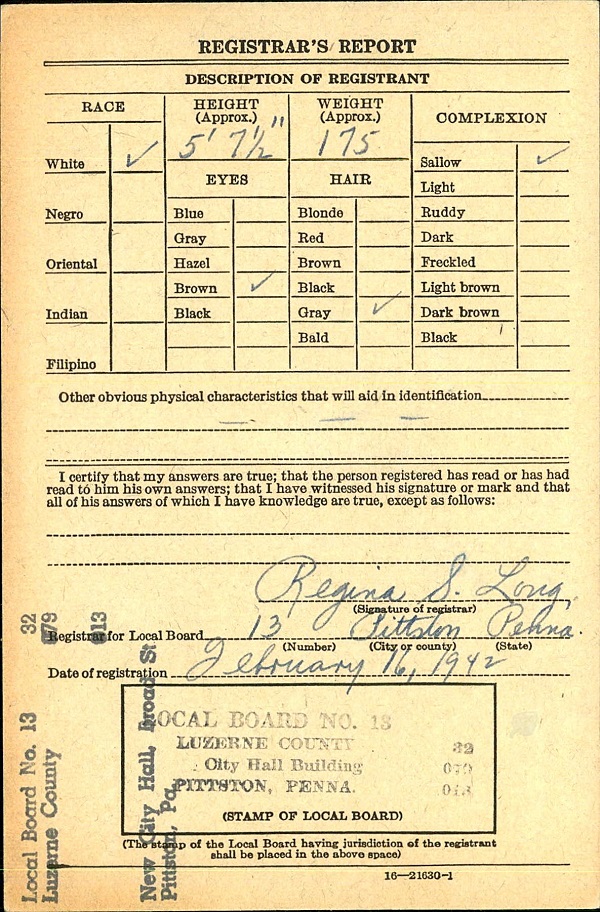 REGISTRAR'S REPORT
DESCRIPTION OF REGISTRANT
RACE
HEIGHT (Approx.)
WEIGHT (Approx.)
COMPLEXION
5' 7½"
175
White ✓
Sallow ✓
EYES
HAIR
Light
Negro
Blue
Blonde
Ruddy
Gray
Red
Dark
Oriental
Hazel
Brown
Freckled
Brown ✓
Black
Light brown
Indian
Black
Gray ✓
Dark brown
Bald
Black
Filipino
Other obvious physical characteristics that will aid in identification
— — —
I certify that my answers are true; that the person registered has read or has had
read to him his own answers; that I have witnessed his signature or mark and that
all of his answers of which I have knowledge are true, except as follows:
Regina S. Long,
(Signature of registrar)
Registrar for Local Board 13 Pittston Penna.
(Number) (City or county) (State)
Date of registration February 16, 1942
LOCAL BOARD NO. 13
LUZERNE COUNTY 32
City Hall Building 079
PITTSTON, PENNA. 013
(STAMP OF LOCAL BOARD)
(The stamp of the Local Board having jurisdiction of the registrant
shall be placed in the above space)
16—21630-1
Local Board No. 13 32
Luzerne County 079
013
New City Hall, Broad St
Pittston, Pa